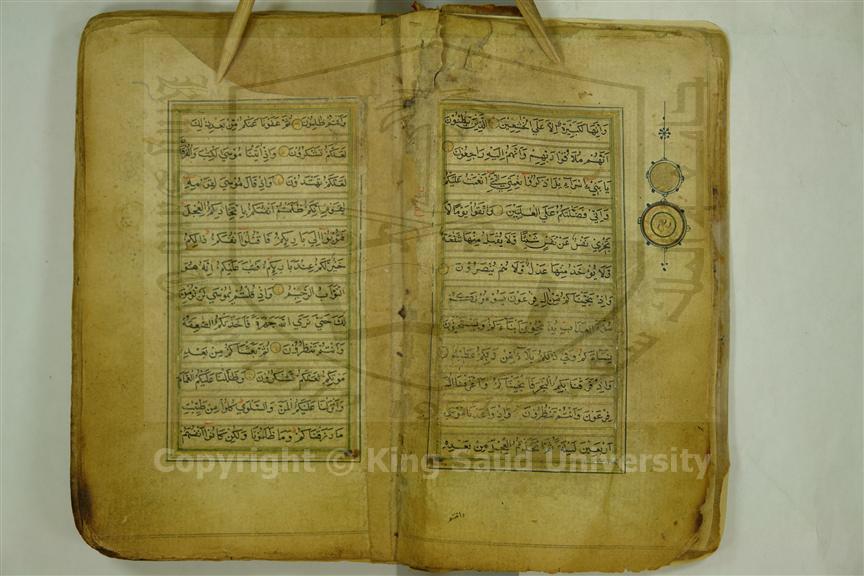 وانها لكبيرة الا علي الخشعين الذين يظنون
انهم ملاقوا ربهم وانهم اليه راجعون
يا بني اسراءيل اذكروا نعمتي التي انعمت عليكم
واني فضلتكم علي العلمين واتقوا يوما لا
تجزي نفس عن نفس شيئا ولا يقبل منها شفعة
ولا يوخذ منها عدل ولا هم ينصرون
واذ نجيناكم من ال فرعون يسومونكم
سوء العذاب يذبحون ابناءكم ويستحيون
نساءكم وفي ذلكم بلاء من ربكم عظيم
واذ فرقنا بكم البحر فانجيناكم واغرقنا ال
فرعون وانتم تنظرون واذ واعدنا موسي
اربعين ليلة ثم اتخذتم العجل من بعده
وانتم
وانتم ظلمون ثم عفونا عنكم من بعد ذلك
لعلكم تشكرون واذ اتينا موسي الكتب والفرقان
لعلكم تهتدون واذ قال موسي لقومه
يقوم انكم ظلمتم انفسكم باتخاذكم العجل
فتوبوا الي بارئكم فاقتلوا انفسكم ذلكم
خير لكم عند بارئكم فتاب عليكم انه هو
التواب الرحيم واذ قلتم يموسي لن نومن
لك حتي نري الله جهرة فاخذتكم الصعقة
وانتم تنظرون ثم بعثناكم من بعد
موتكم لعلكم تشكرون وظللنا عليكم الغمام
وانزلنا عليكم المن والسلوي كلوا من طيبت
ما رزقناكم وما ظلمونا ولكن كانوا انفسهم
Copyright © King Saud University